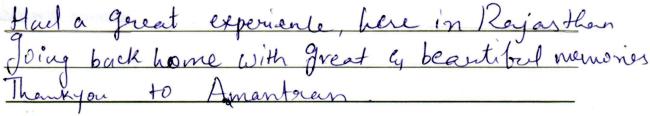 Had a great experience, here in Rajasthan
Going back home with great & beautiful memories
Thankyou to Amantran.